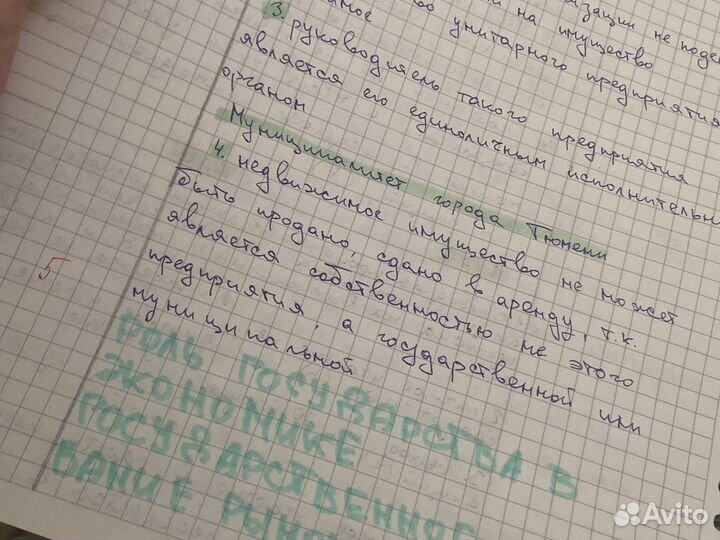 не
на имущество
3. руководитель унитарного предприятия
является такого предприятия
его единоличным исполнительн
органом
Муниципалитет города Тюмени
4. недвижимое имущество не может
быть продано, сдано в аренду, т.к.
является собственностью не этого
предприятия, а государственной или
муниципальной
5
РОЛЬ ГОСУДАРСТВА В
ЭКОНОМИКЕ
ГОСУДАРСТВЕННОЕ
ВАНИЕ РЫН
Avito